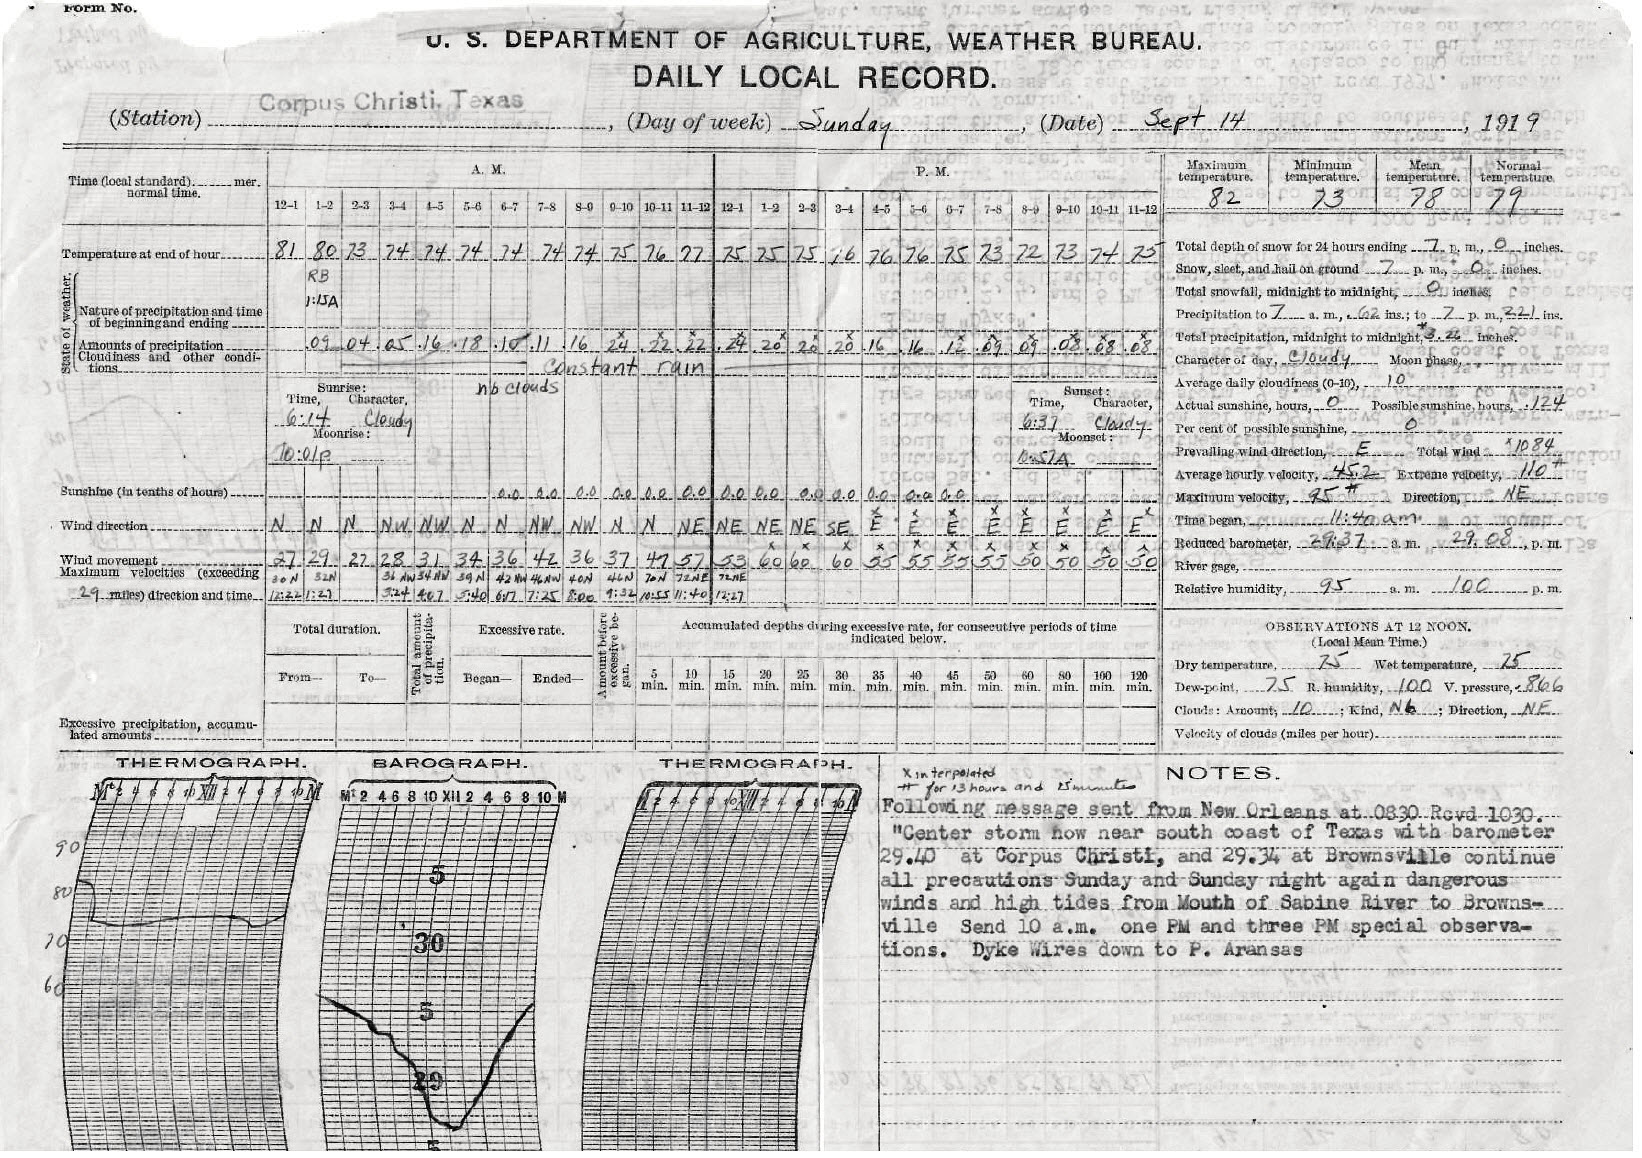 Form No.
U. S. DEPARTMENT OF AGRICULTURE, WEATHER BUREAU.
DAILY LOCAL RECORD.
(Station) Corpus Christi, Texas, (Day of week) Sunday, (Date) Sept 14, 1919
Time (local standard). mer. normal time.
A. M.
P. M.
12–1 1–2 2–3 3–4 4–5 5–6 6–7 7–8 8–9 9–10 10–11 11–12 12–1 1–2 2–3 3–4 4–5 5–6 6–7 7–8 8–9 9–10 10–11 11–12
Temperature at end of hour 81 80 73 74 74 74 74 74 74 75 76 77 75 75 75 76 76 76 75 73 72 73 74 75
State of weather.
RB
1:15A
Nature of precipitation and time of beginning and ending
Amounts of precipitation .09 .04 .05 .16 .18 .11 .16 .24 .22 .22 .24 .20 .20 .20 .16 .16 .12 .09 .09 .08 .08 .08
Cloudiness and other conditions Constant rain
nb clouds
Sunrise:
Time, Character,
6:14 Cloudy
Moonrise:
10:01p
Sunset:
Time, Character,
6:37 Cloudy
Moonset:
10:57A
Sunshine (in tenths of hours) 0.0 0.0 0.0 0.0 0.0 0.0 0.0 0.0 0.0 0.0 0.0 0.0 0.0
Wind direction N N N NW NW N N NW NW N N NE NE NE NE SE E E E E E E E E
Wind movement 27 29 27 28 31 34 36 42 36 37 47 57 53 60 60 60 55 55 55 55 50 50 50 50
Maximum velocities (exceeding 30N 32N 36 NW 34 NW 39 N 42 NW 46 NW 40N 46N 70N 72NE 72NE
29 miles) direction and time 12:22 1:27 3:24 4:07 5:40 6:17 7:25 8:00 9:32 10:55 11:40 12:27
Total duration.
From— To—
Total amount of precipitation.
Excessive rate.
Began— Ended—
Amount before excessive began.
Accumulated depths during excessive rate, for consecutive periods of time indicated below.
5 min. 10 min. 15 min. 20 min. 25 min. 30 min. 35 min. 40 min. 45 min. 50 min. 60 min. 80 min. 100 min. 120 min.
Excessive precipitation, accumulated amounts
Maximum temperature. Minimum temperature. Mean temperature. Normal temperature.
82 73 78 79
Total depth of snow for 24 hours ending 7 p. m., 0 inches.
Snow, sleet, and hail on ground 7 p. m., 0 inches.
Total snowfall, midnight to midnight, 0 inches.
Precipitation to 7 a. m., .62 ins.; to 7 p. m., 2.21 ins.
Total precipitation, midnight to midnight, inches.
Character of day, Cloudy Moon phase,
Average daily cloudiness (0–10), 10
Actual sunshine, hours, 0 Possible sunshine, hours, 12.4
Per cent of possible sunshine, 0
Prevailing wind direction, E Total wind x1084
Average hourly velocity, 45.2 Extreme velocity, 110#
Maximum velocity, 95# Direction, NE
Time began, 11:40 am
Reduced barometer, 29.37 a. m. 29.08, p. m.
River gage,
Relative humidity, 95 a. m. 100 p. m.
OBSERVATIONS AT 12 NOON.
(Local Mean Time.)
Dry temperature, 75 Wet temperature, 75
Dew-point, 75 R. humidity, 100 V. pressure, .866
Clouds: Amount, 10; Kind, Nb; Direction, NE
Velocity of clouds (miles per hour)
THERMOGRAPH.
BAROGRAPH.
THERMOGRAPH.
Mt 2 4 6 8 10 XII 2 4 6 8 10 M
Mt 2 4 6 8 10 XII 2 4 6 8 10 M
90
80
70
60
5
30
5
29
NOTES.
X interpolated
# for 13 hours and 25 minutes
Following message sent from New Orleans at 0830 Rcvd 1030.
"Center storm now near south coast of Texas with barometer
29.40 at Corpus Christi, and 29.34 at Brownsville continue
all precautions Sunday and Sunday night again dangerous
winds and high tides from Mouth of Sabine River to Browns-
ville Send 10 a.m. one PM and three PM special observa-
tions. Dyke Wires down to P. Aransas